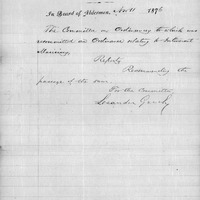 In Board of Aldermen, Nov 11 1876
The Committee on Ordinances to which was
recommitted an Ordinance relating to
Reports
Recommending the
passage of the same.
For the Committee